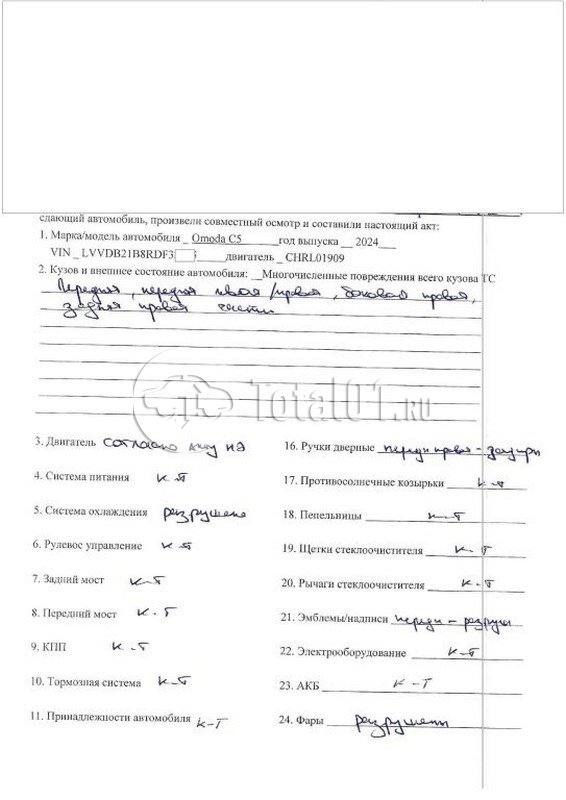 сдающий автомобиль, произвели совместный осмотр и составили настоящий акт:
1. Марка/модель автомобиля _ Omoda C5 год выпуска __ 2024
VIN _ LVVDB21B8RDF3 двигатель _ CHRL01909
2. Кузов и внешнее состояние автомобиля: __Многочисленные повреждения всего кузова ТС
Передняя, передняя левая/правая, боковая правая,
задняя правая части
Total01.RU
3. Двигатель согласно акту
4. Система питания к-т
5. Система охлаждения разрушена
6. Рулевое управление к-т
7. Задний мост к-т
8. Передний мост к-т
9. КПП к-т
10. Тормозная система к-т
11. Принадлежности автомобиля к-т
16. Ручки дверные передн правая - задиры
17. Противосолнечные козырьки к-т
18. Пепельницы к-т
19. Щетки стеклоочистителя к-т
20. Рычаги стеклоочистителя к-т
21. Эмблемы/надписи передн - разруш
22. Электрооборудование к-т
23. АКБ к-т
24. Фары разрушены